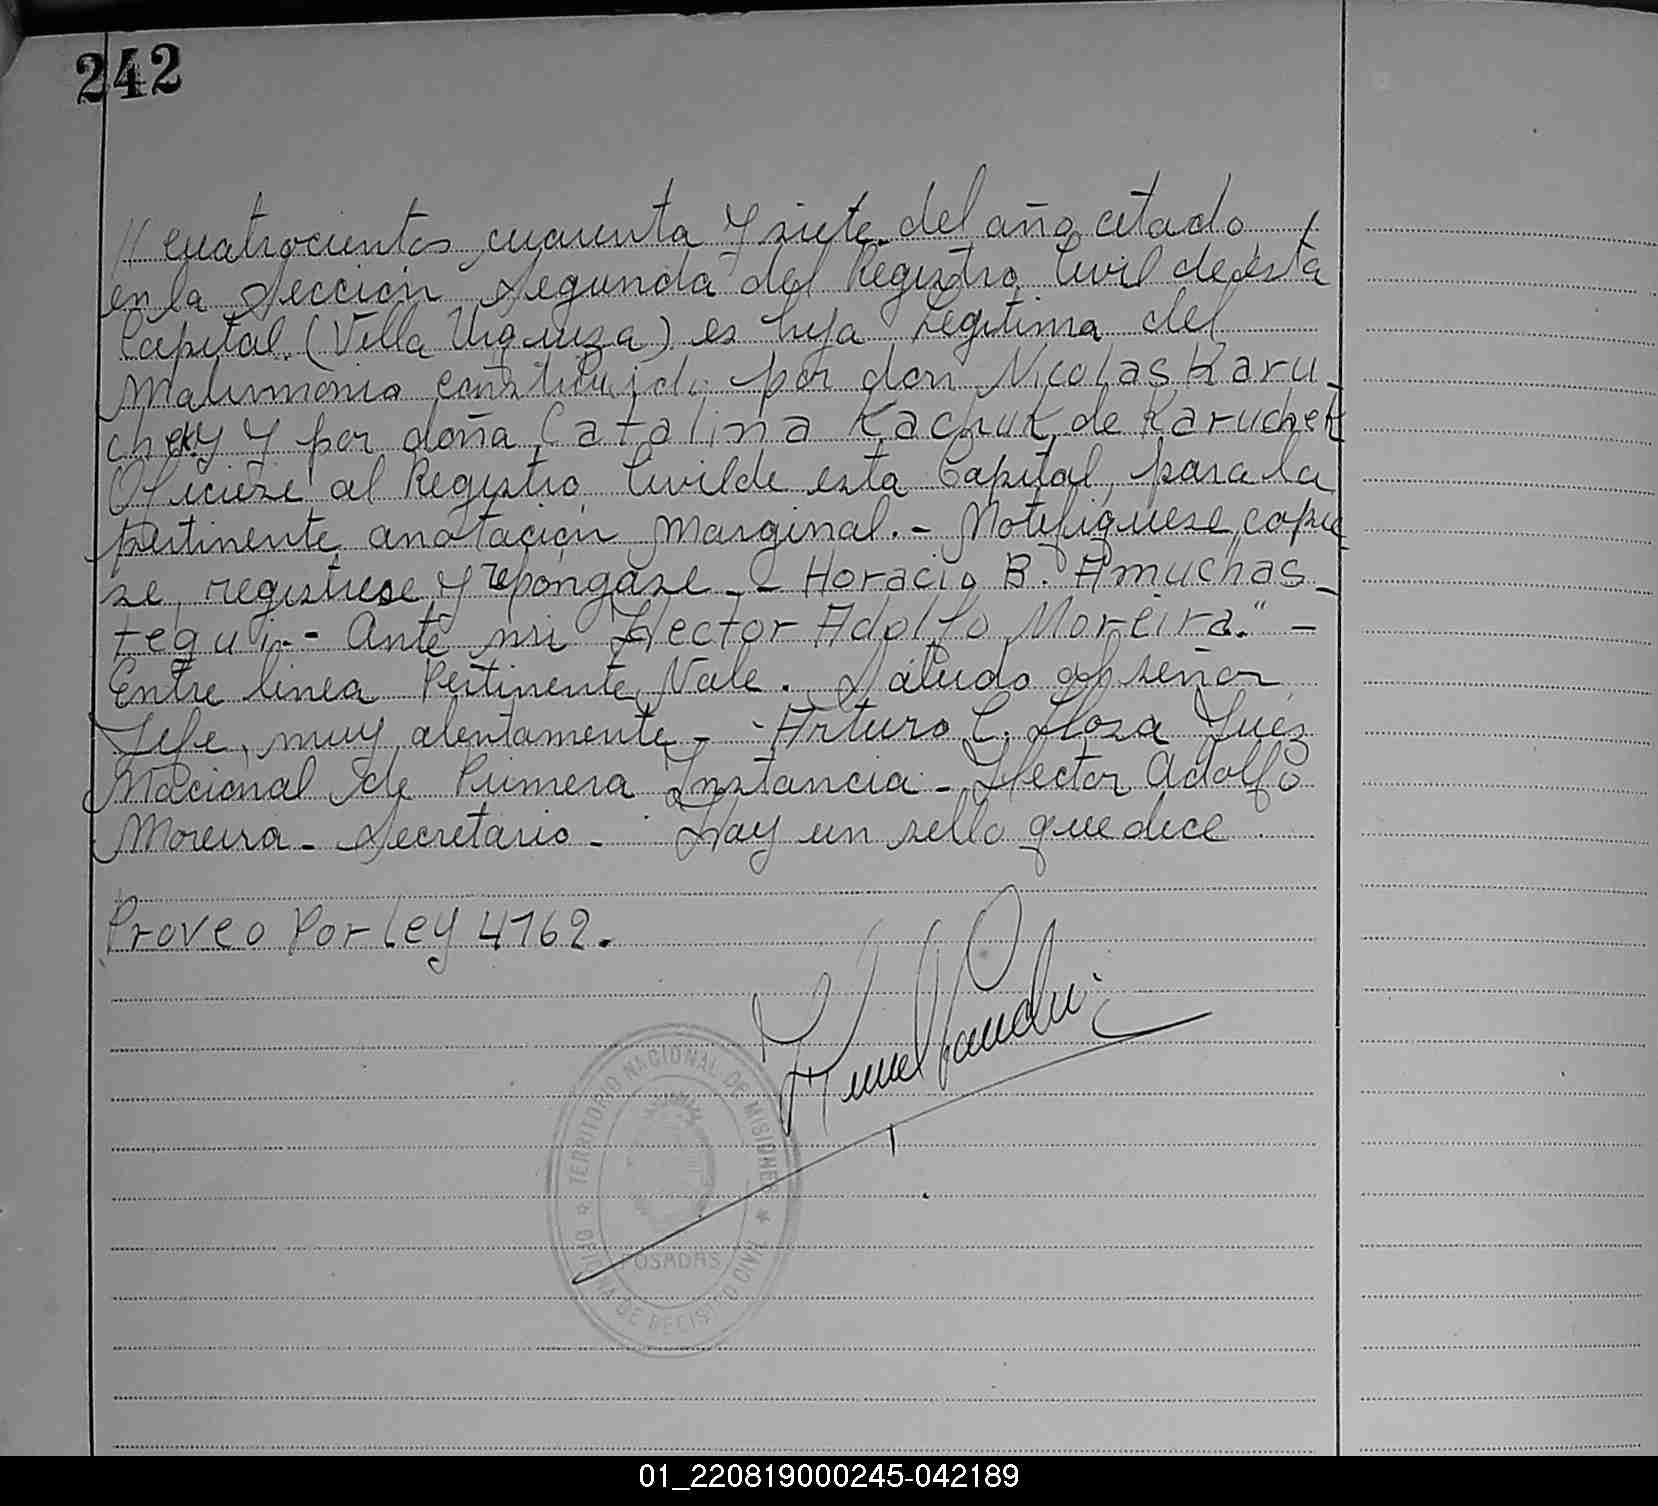 242
// cuatrocientos cuarenta y siete del año citado,
en la Sección Segunda del Registro Civil de esta
Capital (Villa Urquiza) es hija legitima del
matrimonio constituido por don Nicolas Karu-
cheky y por doña Catalina Kachuk de Karuchek
Oficiese al Registro Civil de esta Capital, para la
pertinente anotación marginal.- Notifiquese, copie
se, registrese y repóngase.- Horacio B. Amuchas-
tegui.- Ante mi Hector Adolfo Moreira." -
Entre linea Pertinente Vale. Saludo al señor
Jefe, muy atentamente - Arturo C. Llosa Juez
Nacional de Primera Instancia - Hector Adolfo
Moreira - Secretario - Hay un sello que dice
Proveo Por Ley 4162.
TERRITORIO NACIONAL DE MISIONES
POSADAS
OFICINA DE REGISTRO CIVIL
01_220819000245-042189